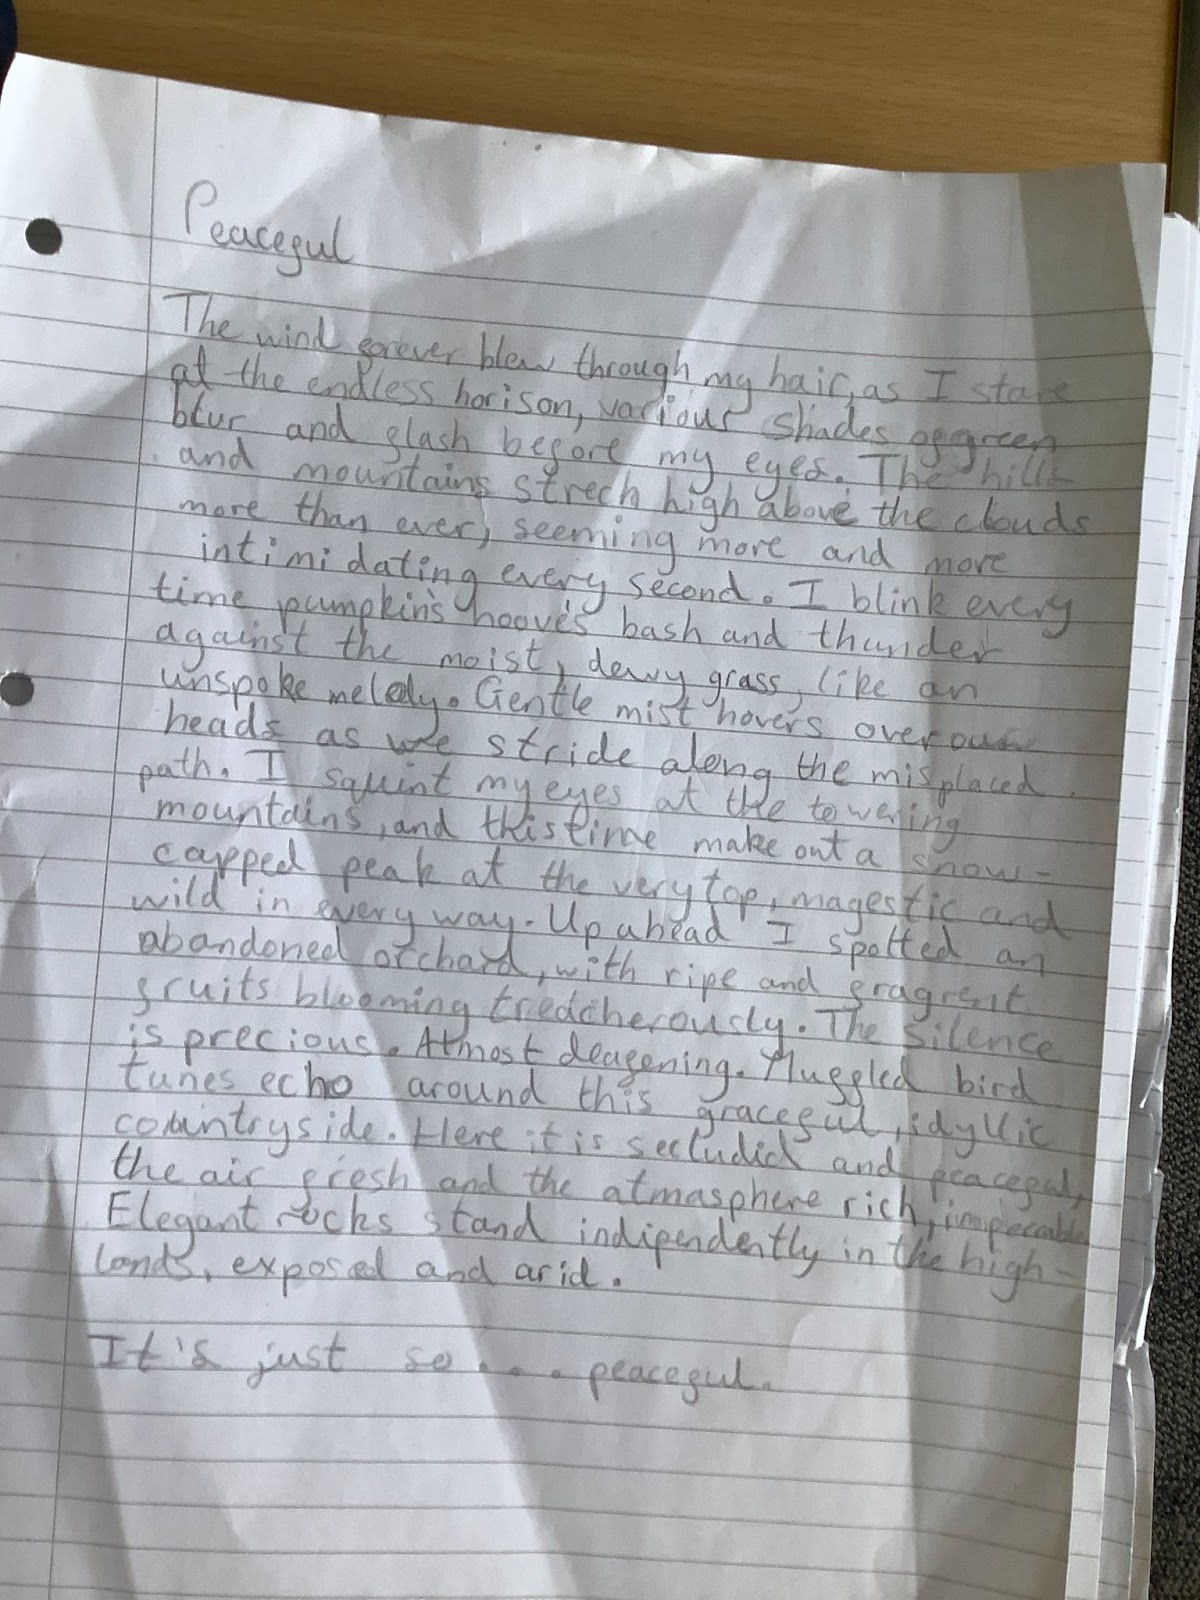 Peaceful
The wind forever blew through my hair, as I stare
at the endless horison, various shades of green
blur and flash before my eyes. The hills
and mountains strech high above the clouds
more than ever, seeming more and more
intimidating every second. I blink every
time pumpkin's hooves bash and thunder
against the moist, dewy grass, like an
unspoke melody. Gentle mist hovers over our
heads as we stride along the misplaced
path. I squint my eyes at the towering
mountains, and this time make out a snow-
capped peak at the very top, magestic and
wild in every way. Up ahead I spotted an
abandoned orchard, with ripe and fragrent
fruits blooming treacherously. The silence
is precious. Almost deafening. Muffled bird
tunes echo around this graceful, idyllic
countryside. Here it is secludid and peaceful,
the air fresh and the atmasphere rich, impeccable
Elegant rocks stand indipendently in the high-
lands, exposed and arid.
It's just so . . . peaceful.